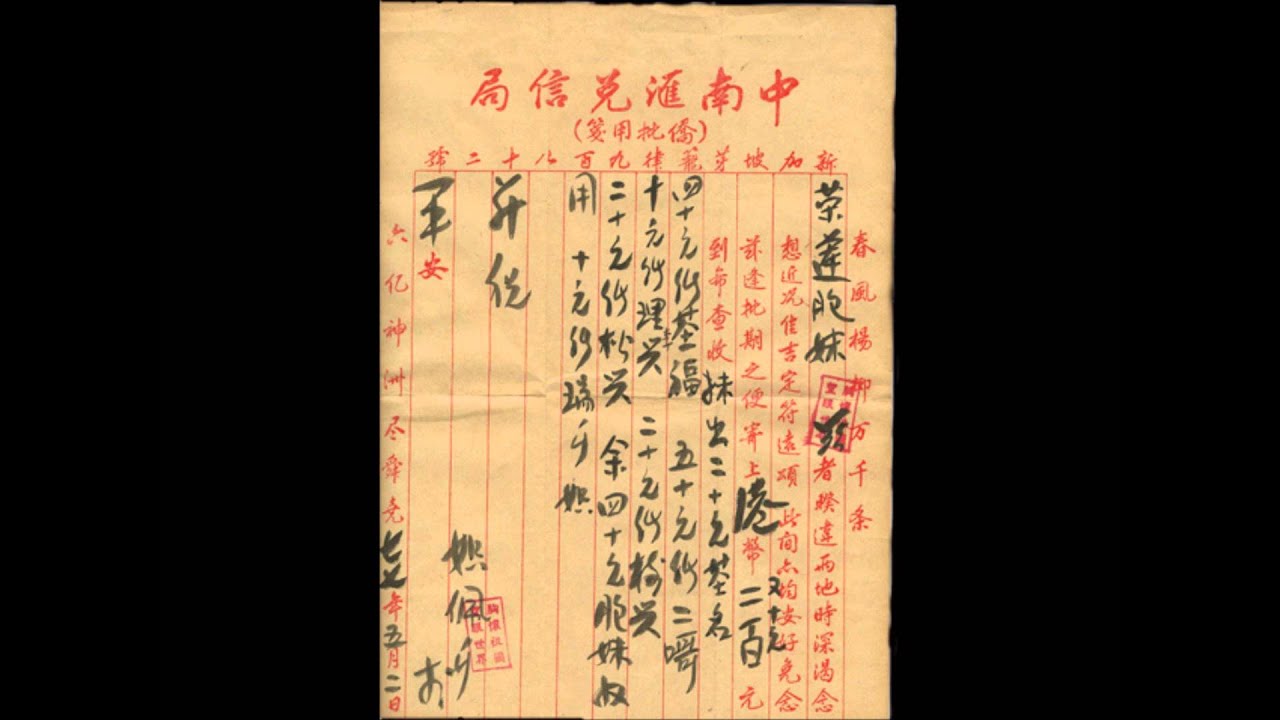 中南滙兌信局
(僑批用箋)
新加坡芽籠律九百八十二號
春風楊柳万千条
榮蓮胞妹 者睽違兩地時深渴念
想近况佳吉定符遠頌 此间亦均安好免念
茲逢批期之便寄上港幣二百元
又十元
到希查收 妹出二十元基名
四十元付基福 五十元付二嬸
十元付理兴 二十元付树兴
二十元付松兴 余四十元胞妹收
用 十元付瑞
并候
平安
佩
胸懷祖國
放眼世界
六亿神洲尽舜尧
七七年五月二日